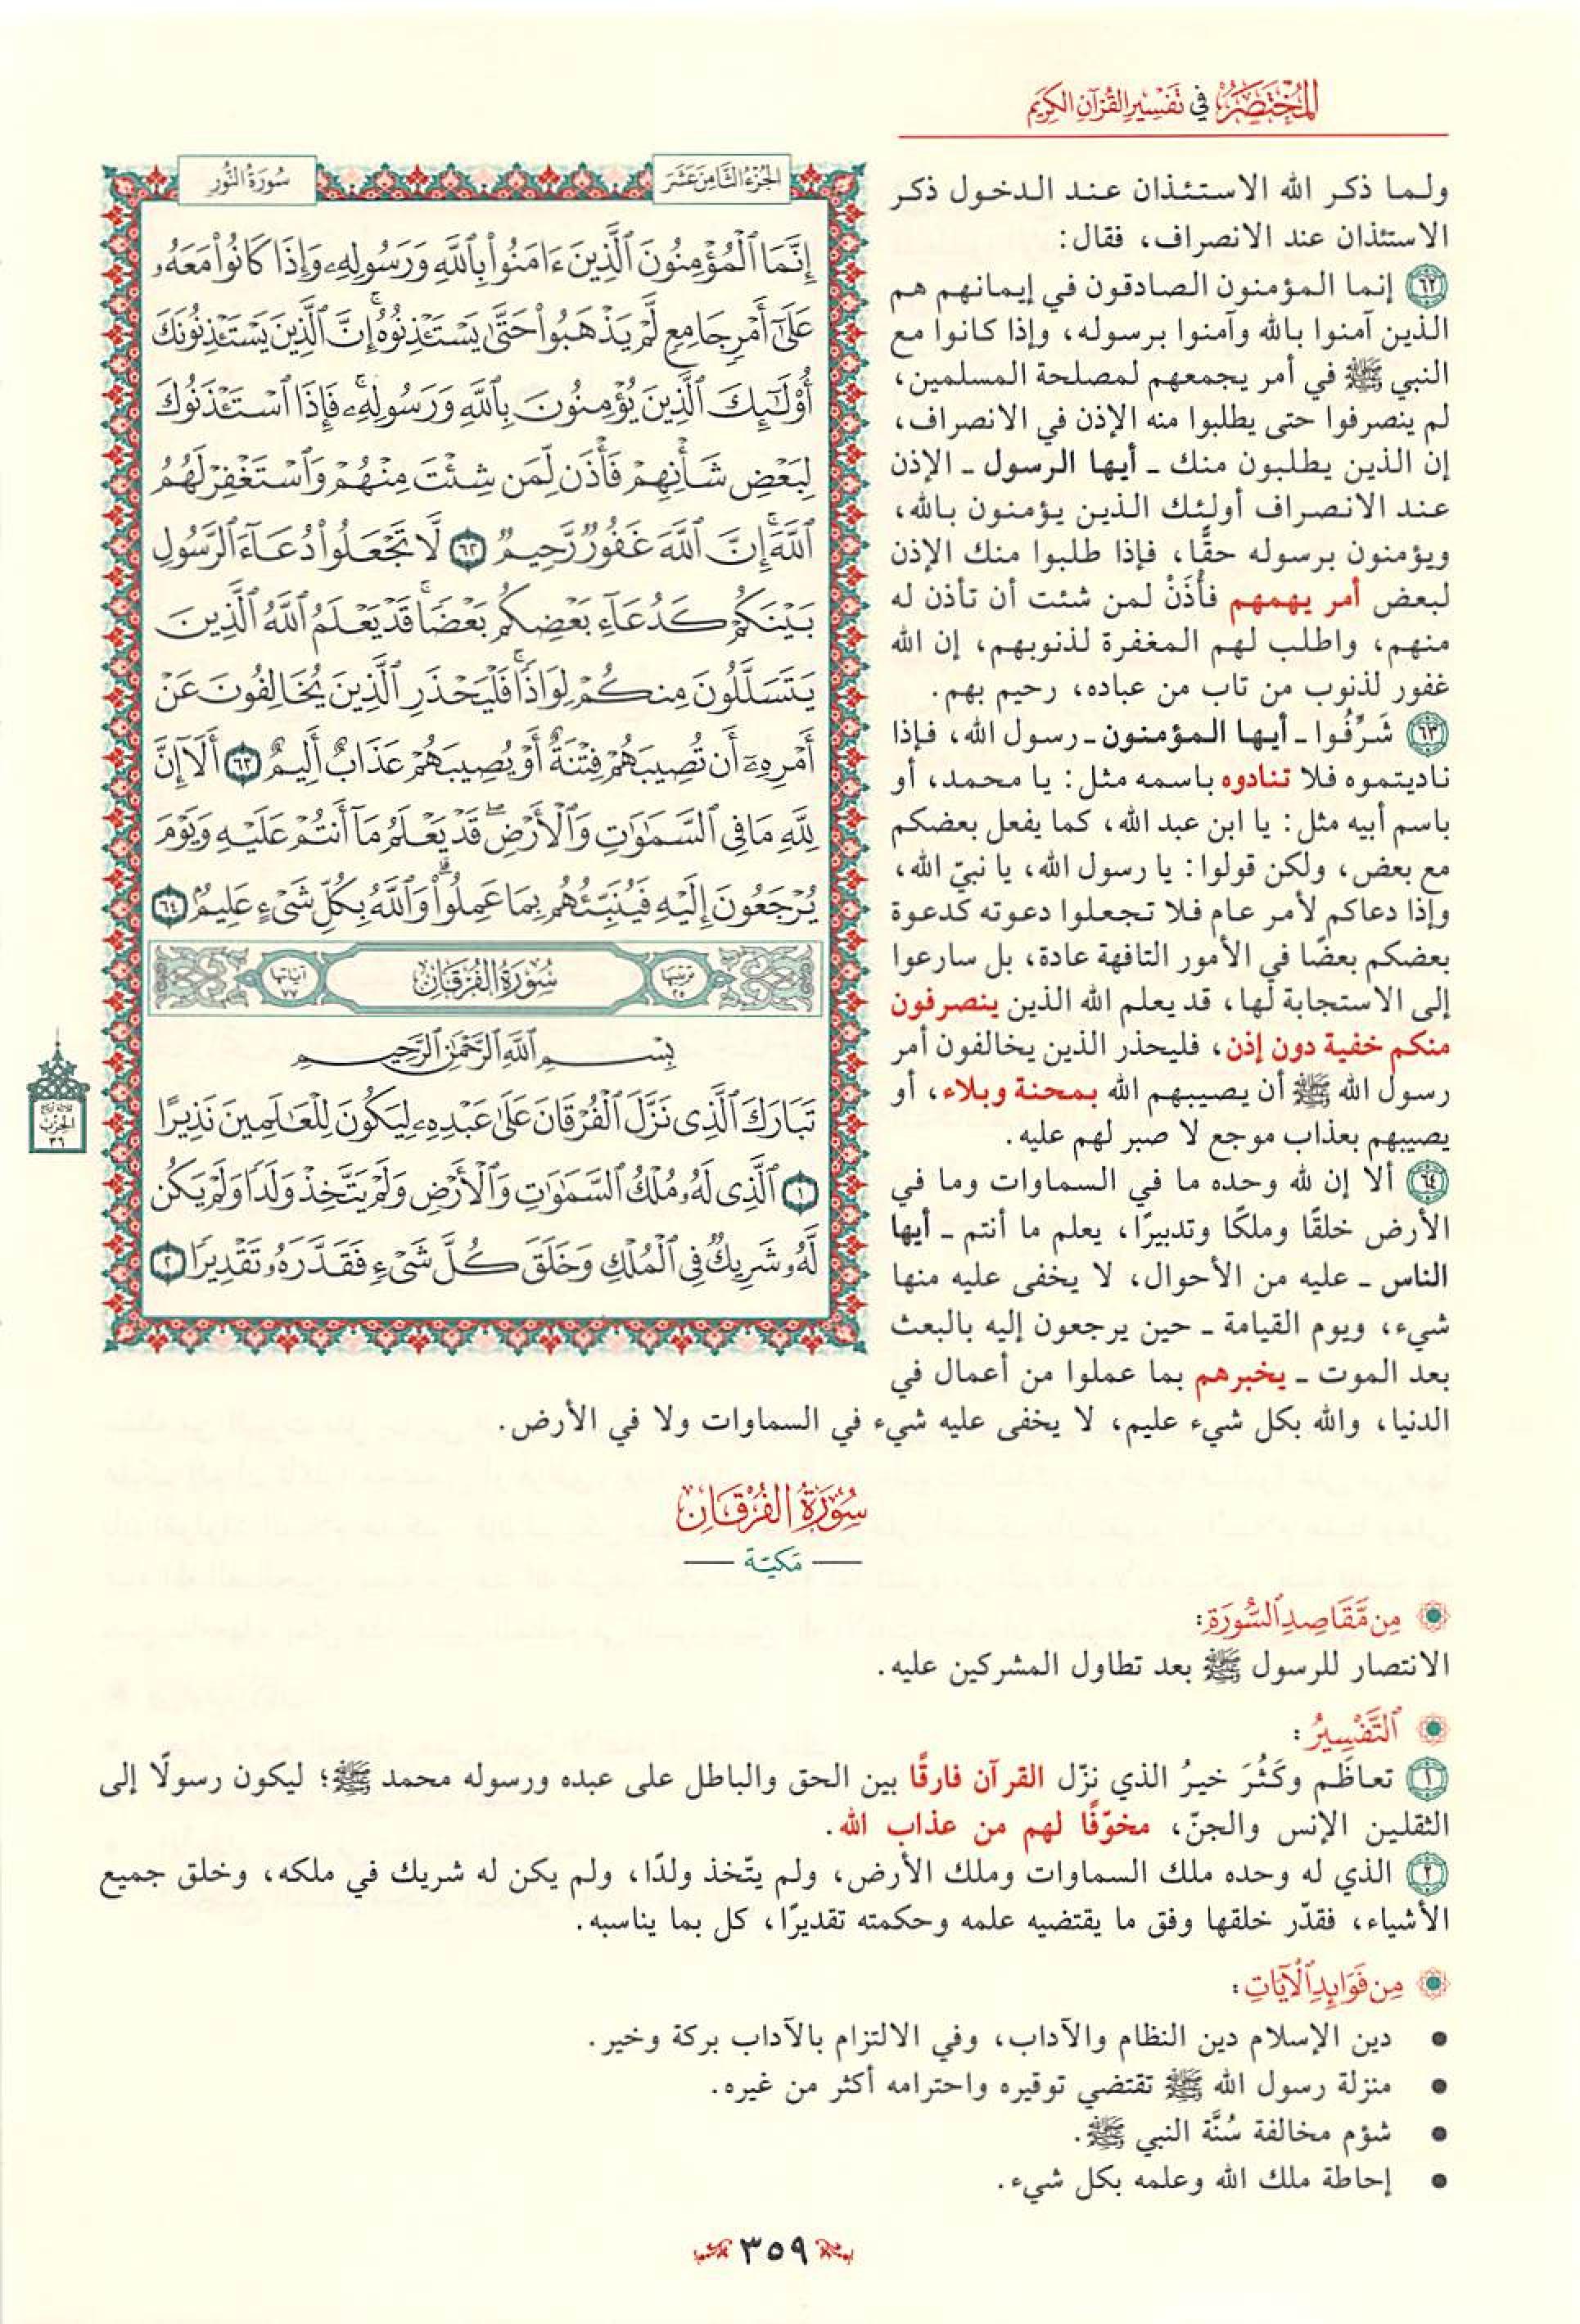 المختصر في تفسير القرآن الكريم
ولما ذكر الله الاستئذان عند الدخول ذكر
الاستئذان عند الانصراف، فقال:
٦٢ إنما المؤمنون الصادقون في إيمانهم هم
الذين آمنوا بالله وآمنوا برسوله، وإذا كانوا مع
النبي ﷺ في أمر يجمعهم لمصلحة المسلمين،
لم ينصرفوا حتى يطلبوا منه الإذن في الانصراف،
إن الذين يطلبون منك ـ أيها الرسول ـ الإذن
عند الانصراف أولئك الذين يؤمنون بالله،
ويؤمنون برسوله حقًّا، فإذا طلبوا منك الإذن
لبعض أمر يهمهم فأْذَنْ لمن شئت أن تأذن له
منهم، واطلب لهم المغفرة لذنوبهم، إن الله
غفور لذنوب من تاب من عباده، رحيم بهم.
٦٣ شَرِّفُوا ـ أيها المؤمنون ـ رسول الله، فإذا
ناديتموه فلا تنادوه باسمه مثل: يا محمد، أو
باسم أبيه مثل: يا ابن عبد الله، كما يفعل بعضكم
مع بعض، ولكن قولوا: يا رسول الله، يا نبيّ الله،
وإذا دعاكم لأمر عام فلا تجعلوا دعوته كدعوة
بعضكم بعضًا في الأمور التافهة عادة، بل سارعوا
إلى الاستجابة لها، قد يعلم الله الذين ينصرفون
منكم خفية دون إذن، فليحذر الذين يخالفون أمر
رسول الله ﷺ أن يصيبهم الله بمحنة وبلاء، أو
يصيبهم بعذاب موجع لا صبر لهم عليه.
٦٤ ألا إن لله وحده ما في السماوات وما في
الأرض خلقًا وملكًا وتدبيرًا، يعلم ما أنتم ـ أيها
الناس ـ عليه من الأحوال، لا يخفى عليه منها
شيء، ويوم القيامة ـ حين يرجعون إليه بالبعث
بعد الموت ـ يخبرهم بما عملوا من أعمال في
الدنيا، والله بكل شيء عليم، لا يخفى عليه شيء في السماوات ولا في الأرض.
الجزء الثامن عشر
سورة النور
إِنَّمَا ٱلْمُؤْمِنُونَ ٱلَّذِينَ ءَامَنُوا۟ بِٱللَّهِ وَرَسُولِهِۦ وَإِذَا كَانُوا۟ مَعَهُۥ
عَلَىٰٓ أَمْرٍ جَامِعٍ لَّمْ يَذْهَبُوا۟ حَتَّىٰ يَسْتَـْٔذِنُوهُ ۚ إِنَّ ٱلَّذِينَ يَسْتَـْٔذِنُونَكَ
أُو۟لَـٰٓئِكَ ٱلَّذِينَ يُؤْمِنُونَ بِٱللَّهِ وَرَسُولِهِۦ ۚ فَإِذَا ٱسْتَـْٔذَنُوكَ
لِبَعْضِ شَأْنِهِمْ فَأْذَن لِّمَن شِئْتَ مِنْهُمْ وَٱسْتَغْفِرْ لَهُمُ
ٱللَّهَ ۚ إِنَّ ٱللَّهَ غَفُورٌ رَّحِيمٌ ٦٢ لَّا تَجْعَلُوا۟ دُعَآءَ ٱلرَّسُولِ
بَيْنَكُمْ كَدُعَآءِ بَعْضِكُم بَعْضًا ۚ قَدْ يَعْلَمُ ٱللَّهُ ٱلَّذِينَ
يَتَسَلَّلُونَ مِنكُمْ لِوَاذًا ۚ فَلْيَحْذَرِ ٱلَّذِينَ يُخَالِفُونَ عَنْ
أَمْرِهِۦٓ أَن تُصِيبَهُمْ فِتْنَةٌ أَوْ يُصِيبَهُمْ عَذَابٌ أَلِيمٌ ٦٣ أَلَآ إِنَّ
لِلَّهِ مَا فِى ٱلسَّمَـٰوَٰتِ وَٱلْأَرْضِ ۖ قَدْ يَعْلَمُ مَآ أَنتُمْ عَلَيْهِ وَيَوْمَ
يُرْجَعُونَ إِلَيْهِ فَيُنَبِّئُهُم بِمَا عَمِلُوا۟ ۗ وَٱللَّهُ بِكُلِّ شَىْءٍ عَلِيمٌۢ ٦٤
ترتيبها ٢٥ سُورَةُ الفُرْقَانِ آياتها ٧٧
بِسْمِ ٱللَّهِ ٱلرَّحْمَـٰنِ ٱلرَّحِيمِ
تَبَارَكَ ٱلَّذِى نَزَّلَ ٱلْفُرْقَانَ عَلَىٰ عَبْدِهِۦ لِيَكُونَ لِلْعَـٰلَمِينَ نَذِيرًا
١ ٱلَّذِى لَهُۥ مُلْكُ ٱلسَّمَـٰوَٰتِ وَٱلْأَرْضِ وَلَمْ يَتَّخِذْ وَلَدًا وَلَمْ يَكُن
لَّهُۥ شَرِيكٌ فِى ٱلْمُلْكِ وَخَلَقَ كُلَّ شَىْءٍ فَقَدَّرَهُۥ تَقْدِيرًا ٢
ثلاثة أرباع
الحزب
٣٦
سُورَةُ الفُرْقَانِ
مَكيّة
مِن مَّقَاصِدِ ٱلسُّورَةِ:
الانتصار للرسول ﷺ بعد تطاول المشركين عليه.
ٱلتَّفْسِيرُ:
١ تعاظَم وكَثُرَ خيرُ الذي نزّل القرآن فارقًا بين الحق والباطل على عبده ورسوله محمد ﷺ؛ ليكون رسولًا إلى
الثقلين الإنس والجنّ، مخوّفًا لهم من عذاب الله.
٢ الذي له وحده ملك السماوات وملك الأرض، ولم يتّخذ ولدًا، ولم يكن له شريك في ملكه، وخلق جميع
الأشياء، فقدّر خلقها وفق ما يقتضيه علمه وحكمته تقديرًا، كل بما يناسبه.
مِن فَوَائِدِ ٱلْآيَاتِ:
● دين الإسلام دين النظام والآداب، وفي الالتزام بالآداب بركة وخير.
● منزلة رسول الله ﷺ تقتضي توقيره واحترامه أكثر من غيره.
● شؤم مخالفة سُنَّة النبي ﷺ.
● إحاطة ملك الله وعلمه بكل شيء.
٣٥٩